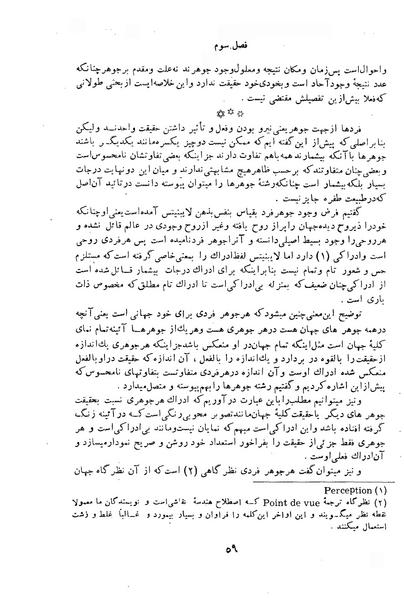 فصل سوم
و احوال است پس زمان و مکان نتیجه و معلول وجود جوهرند نه علت و مقدم بر جوهر چنانکه
عدد نتیجهٔ وجود آحاد است و بخودی خود حقیقت ندارد و این خلاصه ایست از بحثی طولانی
که فعلا بیش از این تفصیلش مقتضی نیست .
* * *
فردها از جهت جوهر یعنی نیرو بودن و فعل و تأثیر داشتن حقیقت واحدند ولیکن
بنابر اصلی که پیش از این گفته ایم که ممکن نیست دو چیز یکسر مانند یکدیگر باشند
جوهرها با آنکه بیشمارند همه باهم تفاوت دارند جز اینکه بعضی تفاوتشان نامحسوس است
و بعضی چنان متفاوتند که بر حسب ظاهر هیچ مشابهتی ندارند و میان این دو نهایت درجات
بسیار بلکه بیشمار است چنانکه رشتهٔ جوهرها را میتوان پیوسته دانست در تائید آن اصل
که در طبیعت طفره جایز نیست .
گفتیم فرض وجود جوهر فرد بقیاس بنفس بذهن لایبنیتس آمده است یعنی او چنانکه
خود را ذیروح دیده جهان را پر از روح یافته و غیر از روح وجودی در عالم قائل نشده و
هر روحی را وجود بسیط اصلی دانسته و آنرا جوهر فرد نامیده است پس هر فردی روحی
است و ادراکی (۱) دارد اما لایبنیتس لفظ ادراك را بمعنی خاصی گرفته است که مستلزم
حس و شعور تام و تمام نیست بنابراینکه برای ادراك درجات بیشمار قائل شده است
از ادراکی چنان ضعیف که بمنزله بی ادراکی است تا ادراك تام مطلق که مخصوص ذات
باری است .
توضیح این معنی چنین میشود که هر جوهر فردی برای خود جهانی است یعنی آنچه
در همه جوهر های جهان هست در هر جوهری هست و هر یك از جوهرها آئینه تمام نمای
کلیهٔ جهان است مثل اینکه تمام جهان در او منعکس باشد جز اینکه هر جوهری یك اندازه
از حقیقت را بالقوه در بردارد و یك اندازه را بالفعل ، آن اندازه که حقیقت در او بالفعل
منعکس شده ادراك اوست و آن اندازه در هر فردی متفاوتست بتفاوتهای نامحسوس که
پیش از این اشاره کردیم و گفتیم رشته جوهرها را بهم پیوسته و متصل میدارد .
و نیز میتوانیم مطلب را با این عبارت در آوریم که ادراك هر جوهری نسبت بحقیقت
جوهر های دیگر یا حقیقت کلیهٔ جهان مانند تصویر محو بی رنگی است که در آئینه زنگ
گرفته افتاده باشد و این ادراکی است مبهم که نمایان نیست و مانند بی ادراکی است و هر
جوهری فقط جزئی از حقیقت را بفراخور استعداد خود روشن و صریح نمودار میسازد و
آن ادراك فعلی اوست .
و نیز میتوان گفت هر جوهر فردی نظر گاهی (۲) است که از آن نظر گاه جهان
(۱) Perception
(۲) نظر گاه ترجمهٔ Point de vue که اصطلاح هندسهٔ نقاشی است و نویسندگان ما معمولا
نقطه نظر میگویند و این اواخر این کلمه را فراوان و بسیار بیمورد و غالباً غلط و زشت
استعمال میکنند .
۵۹